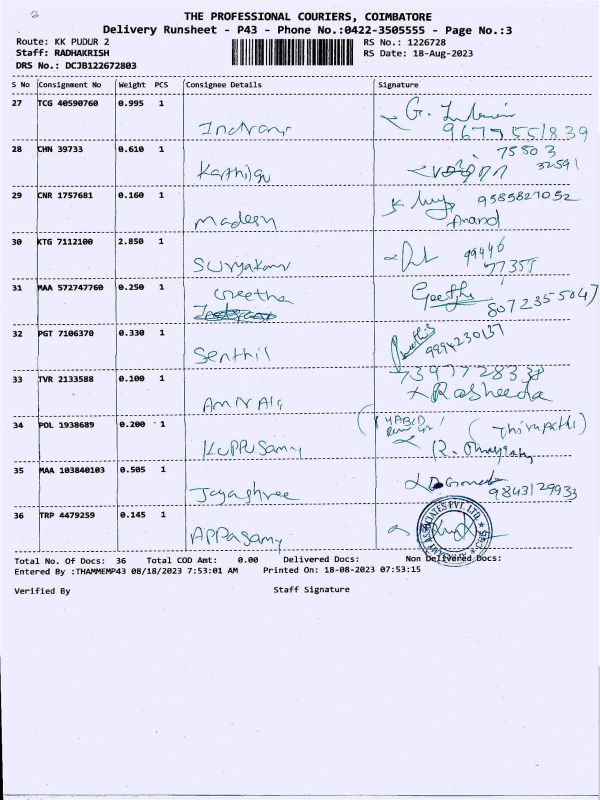 THE PROFESSIONAL COURIERS, COIMBATORE
Delivery Runsheet - P43 - Phone No.:0422-3505555 - Page No.:3
Route: KK PUDUR 2 RS No.: 1226728
Staff: RADHAKRISH RS Date: 18-Aug-2023
DRS No.: DCJB122672803
S No Consignment No Weight PCS Consignee Details Signature
27 TCG 40590760 0.995 1
28 CHN 39733 0.610 1 75503
32591
29 CNR 1757681 0.160 1 Madesh 9585827052
Anand
30 KTG 7112100 2.850 1 99446
77355
31 MAA 572747760 0.250 1 Geetha Geetha
8072355047
32 PGT 7106370 0.330 1 Senthil 9994230137
33 TVR 2133588 0.100 1 7397728338
Rasheeda
34 POL 1938689 0.200 1 Kuppusamy (Thirupathi)
35 MAA 103840103 0.505 1 Jayashree 9843129933
36 TRP 4479259 0.145 1 APPasamy
Total No. Of Docs: 36 Total COD Amt: 0.00 Delivered Docs: Non Delivered Docs:
Entered By :THAMMEMP43 08/18/2023 7:53:01 AM Printed On: 18-08-2023 07:53:15
Verified By Staff Signature